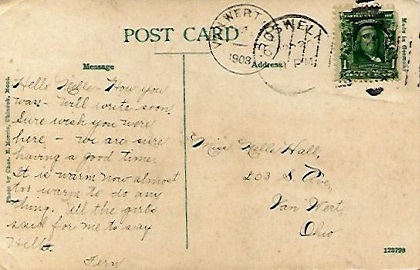 POST CARD
VAN WERT
1908
Message
Address
Made in Germany
Photo by Chas. E. Morris, Chinook, Mont.
Hello Nelle - How you
was - Will write soon
Sure wish you were
here - we are sure
having a good time.
It is warm now almost
too warm to do any
thing. All the girls
said for me to say
Hello.
Fern
Miss Nelle Hall,
203 S. Ave
Van Wert,
Ohio
123799